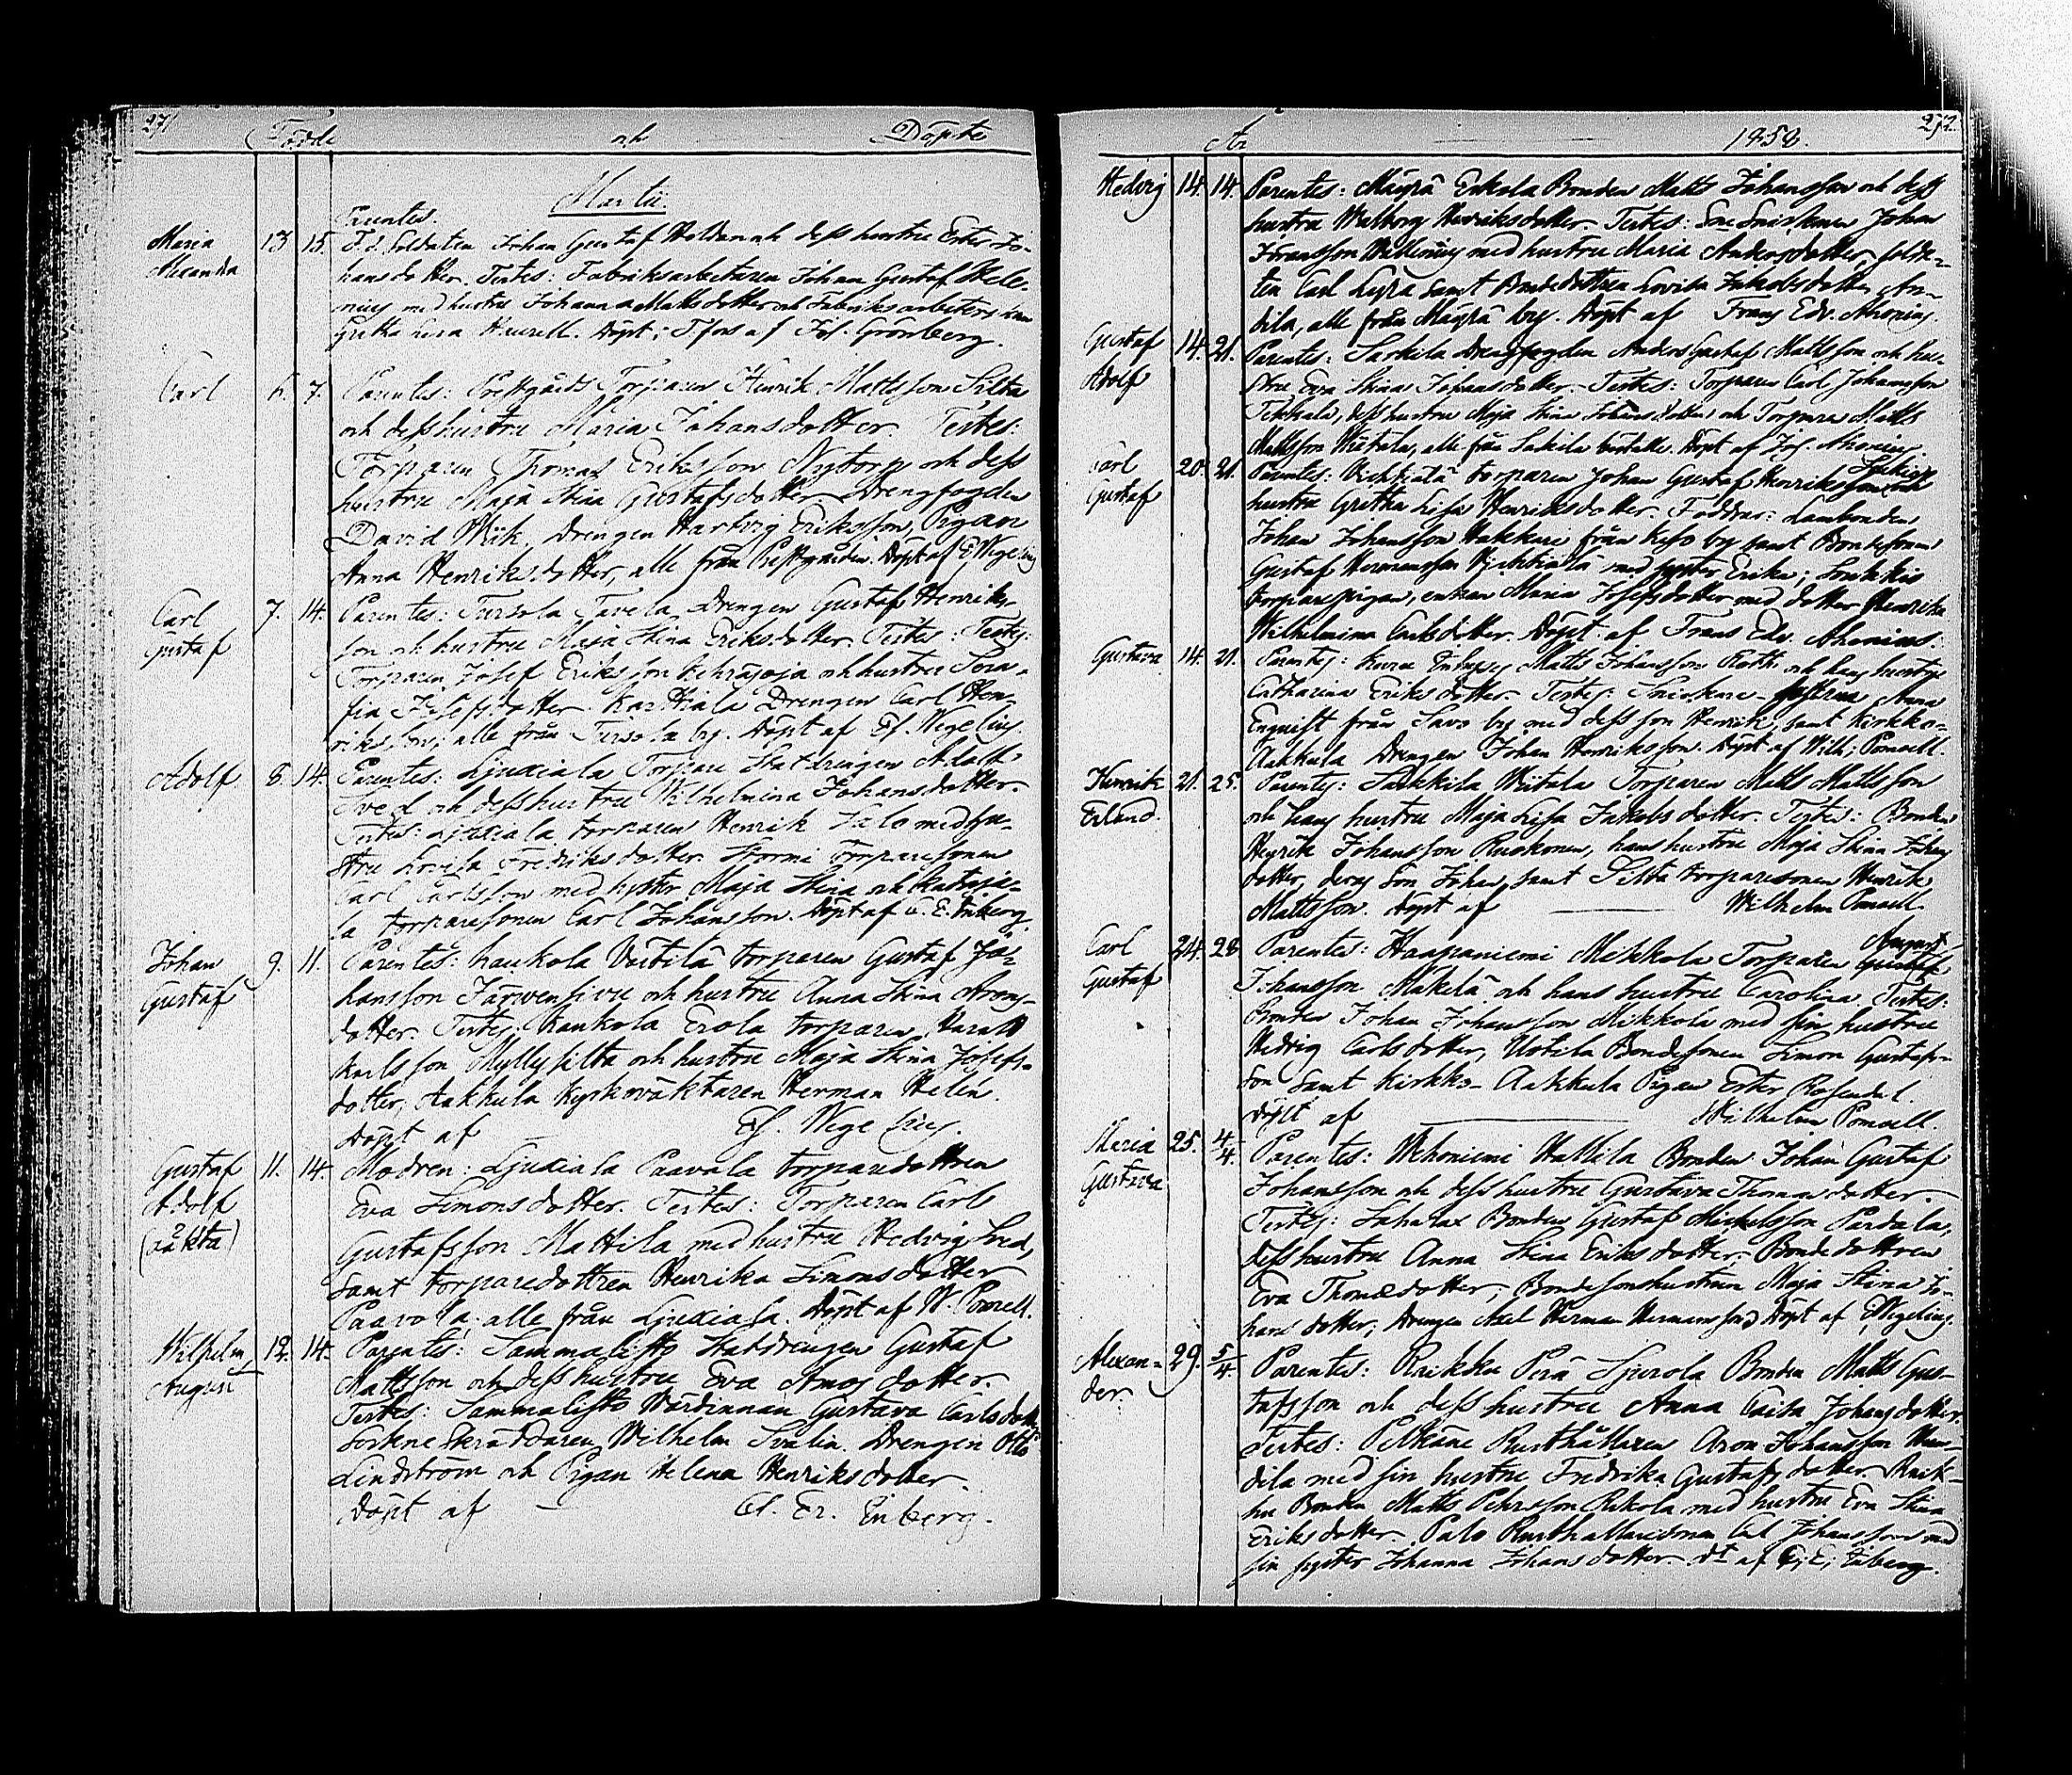 271 Födde och Döpte
Martii.
Parentes.
Maria 13 15. F.d. Soldaten Johan Gustaf Holdan och dess hustru Ester Jo-
Alexandra hansdotter. Testes: Fabriksarbetaren Johan Gustaf Hele-
nius med hustru Johanna Mattsdotter och Fabriksarbeters
Gretha Lisa Döpt i T:fors af Jos. Grönberg.
Carl 6. 7. Parentes: Prestgårds Torparen Henrik Mattsson Silta
och dess hustru Maria Johansdotter. Testes:
Torparen Thomas Eriksson Nytorp och dess
hustru Maja Stina Gustafsdotter Drengfogden
David Wiik, Drengen Hartvig Eriksson, Pigan
Anna Henriksdotter, alle från Prestgården. Döpt af E. Wegelius
Carl 7. 14. Parentes: Tursola Tavela Drengen Gustaf Henriks-
Gustaf son och hustru Maja Stina Eriksdotter. Testes: Testes:
Torparen Josef Eriksson och hustru Sera-
fia Josefsdotter. Karttiala Drengen Carl Hen-
riksson, alle från Tursola by. Döpt af Ef. Wegelius.
Adolf 8. 14. Parentes: Ljuxiala Torpare Statdrengen Adolf
Sved och dess hustru Wilhelmina Johansdotter.
Testes: Ljuxiala torparen Henrik Jalo med hu-
stru Lovisa Fredriksdotter. Stormi Torparesonen
Carl Carlsson med syster Maja Stina och
la torparesonen Carl Johansson. Döpt af C. E. Enberg.
Johan 9. 11. Parentes: Kaukola Västilä torparen Gustaf Jo-
Gustaf hansson Järvensivu och hustru Anna Stina Arons-
dotter. Testes: Kaukola Erola torparen
Karlsson Myllysilta och hustru Maja Stina Josefs-
dotter, Aakkula Kyrkoväktaren Herman Helén.
Döpt af Ef. Wegelius.
Gustaf 11. 14. Modren: Ljuxiala Paavola torparedottren
Adolf Eva Simonsdotter. Testes: Torparen Carl
(oäkta) Gustafsson Mattila med hustru Hedvig Sved,
samt torparedottren Henrika Simonsdotter
Paavola alle från Ljuxiala. Döpt af W. Ponsell.
Wilhelm 12. 14. Parentes: Sammalisto Statdrengen Gustaf
August Mattsson och dess hustru Eva Amosdotter.
Testes: Sammalisto Värdinnan Gustava Carlsdotter
Sockneskräddaren Wilhelm Svalin. Drengen Otto
Lindström och Pigan Helena Henriksdotter.
Döpt af Cl. Er. Enberg.
År 1858. 272
Hedvig 14. 14. Parentes: Mäyrä Eskola Bonden Matts Johansson och dess
hustru Walborg Henriksdotter. Testes: Johan
Wallenius med hustru Maria Andersdotter, solda-
ten Carl Leyra samt Bondedottren Lovisa Jakobsdotter An-
dila, alle från Mäyrä by. Döpt af Frans Edv. Ahonius.
Gustaf 14. 21. Parentes: Sarkila Drengfogden Anders Gustaf Mattsson och hu-
Adolf stru Eva Stina Johansdotter. Testes: Torparen Carl Johansson
dess hustru Maja Stina Johansdotter och Torparen Matts
Mattsson Wiitala, alle från Döpt af Jos. Ahonius.
Carl 20. 21. Parentes: torparen Johan Gustaf Henriksson och
Gustaf hustru Gretha Lisa Henriksdotter. Faddrar: Lambonden
Johan Johansson Hakkari från by samt Bondesonen
Gustaf Hermansson med syster Erika;
torparepigan, enkan Maria Josefsdotter med dotter Henrika
Wilhelmina Carlsdotter. Döpt af Frans Edv. Ahonius.
Gustava 14. 21. Parentes: Matts Johansson och hans hustru
Catharina Eriksdotter. Testes: Anna
Enquist från Savo by med dess son Henrik, samt Kirkko-
Aakkula Drengen Johan Henriksson. Döpt af Wilh: Ponsell.
Henrik 21. 25. Parentes: Sarkkila Wiitala Torparen Matts Mattsson
Erland. och hans hustru Maja Lisa Jakobsdotter. Testes: Bonden
Henrik Johansson Ruokonen, hans hustru Maja Stina Johans
dotter, deras son Johan, samt Silta torparesonen Henrik
Mattsson. Döpt af Wilhelm Ponsell.
August
Carl 24. 28 Parentes: Haapaniemi Mikkola Torparen Gustaf
Gustaf Johansson Mäkelä och hans hustru Carolina. Testes:
Bonden Johan Johansson Mikkola med sin hustru
Hedvig Carlsdotter, Uotila Bondesonen Simon Gustafs-
son samt Kirkko-Aakkula Pigan Ester Rosendel.
Döpt af Wilhelm Ponsell.
Maria 25. 4/4. Parentes: Wehoniemi Hallila Bonden Johan Gustaf
Gustava Johansson och dess hustru Gustava Thomasdotter.
Testes: Sahalax Bonden Gustaf Michelsson Pardala,
dess hustru Anna Stina Eriksdotter. Bondedottren
Eva Thomædotter, Bondesonshustrun Maja Stina Jo-
hansdotter, Drengen Axel Herman Hermansson. Döpt af E. Wegelius.
Alexan- 29. 5/4. Parentes: Raikku Perä Sipola Bonden Matts Gus-
der tafsson och dess hustru Anna Caisa Johansdotter.
Testes: Pelkäne Rusthållaren Aron Johansson
dila med sin hustru Fredrika Gustafsdotter. Raik-
ku Bonden Matts Pehrsson Rekola med hustru Eva Stina
Eriksdotter. Palo Rusthållaresonen Carl Johansson med
sin syster Johanna Johansdotter. Dt af C. E. Enberg.